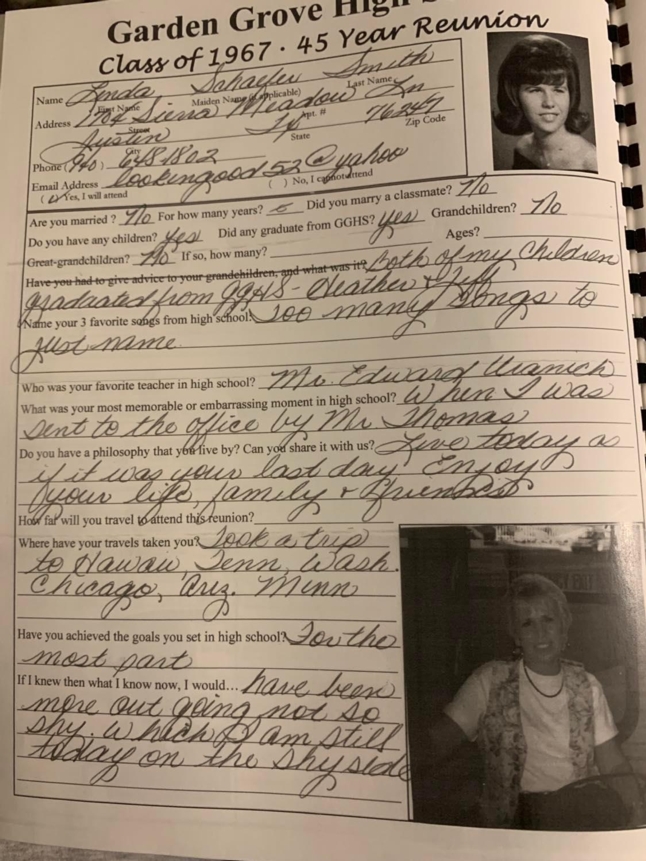 Garden Grove High
Class of 1967 · 45 Year Reunion
Name Linda Schaefer Smith
First Name Maiden Name (if applicable) Last Name
Address 1704 Sierra Meadow Ln
Street Apt. #
Justin Tx 76247
City State Zip Code
Phone (940) 648 1802
Email Address lookingood52@yahoo
(✓) Yes, I will attend ( ) No, I cannot attend
Are you married? No For how many years? Did you marry a classmate? No
Do you have any children? Yes Did any graduate from GGHS? Yes Grandchildren? No
Great-grandchildren? No If so, how many? Ages?
Have you had to give advice to your grandchildren, and what was it? Both of my Children
graduated from GGHS - Heather & Jeff
Name your 3 favorite songs from high school! Too many songs to
just name
Who was your favorite teacher in high school? Mr. Edward Uranich
What was your most memorable or embarrassing moment in high school? When I was
sent to the office by Mr Thomas
Do you have a philosophy that you live by? Can you share it with us? Live today as
if it was your last day! Enjoy
your life, family + friends
How far will you travel to attend this reunion?
Where have your travels taken you? Took a trip
to Hawaii, Tenn, Wash.
Chicago, Ariz. Minn
Have you achieved the goals you set in high school? For the
most part
If I knew then what I know now, I would... have been
more out going not so
shy. Which I am still
today on the shy side